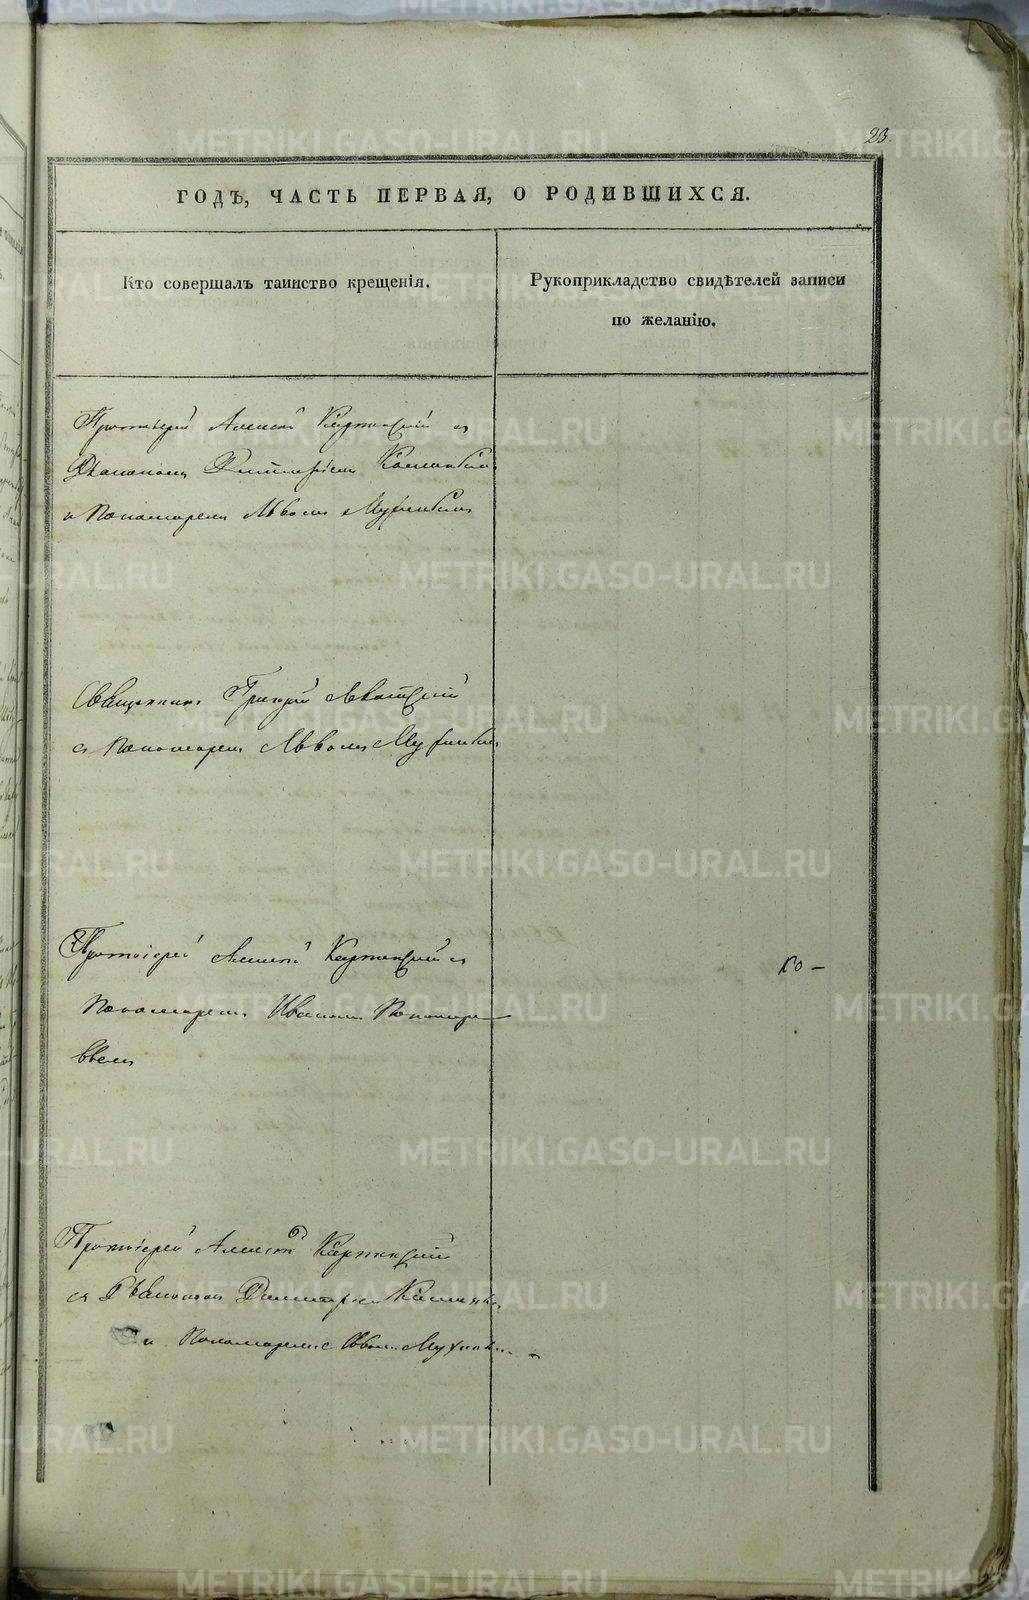 23
ГОДЪ, ЧАСТЬ ПЕРВАЯ, О РОДИВШИХСЯ.
Кто совершалъ таинство крещенія.
Рукоприкладство свидѣтелей записи
по желанію.
Протоіерей Алексѣй Карпинскій съ
Діакономъ Димитріемъ
и Пономаремъ Львомъ Мухинымъ
Священникъ Григорій
съ Пономаремъ Львомъ Мухинымъ
Протоіерей Алексѣй Карпинскій съ
Пономаремъ Иваномъ Пономаре-
вымъ
Протоіерей Алексѣй Карпинскій
съ Діакономъ Димитріемъ
и Пономаремъ Львомъ Мухинымъ
METRIKI.GASO-URAL.RU